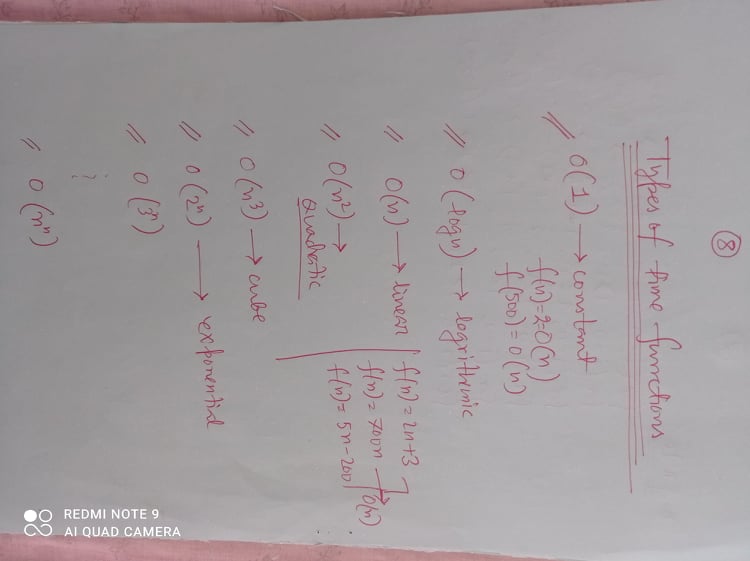 8
Types of time functions
// O(1) → constant
f(n)=2=O(n)
f(500)=O(n)
// O(logn) → logrithmic
// O(n) → linear
f(n)= 2n+3
f(n)= 700n → O(n)
f(n)= 5n-200
// O(n²) →
Quadratic
// O(n³) → cube
// O(2ⁿ) → exponential
// O(3ⁿ)
// O(nⁿ)
REDMI NOTE 9
AI QUAD CAMERA